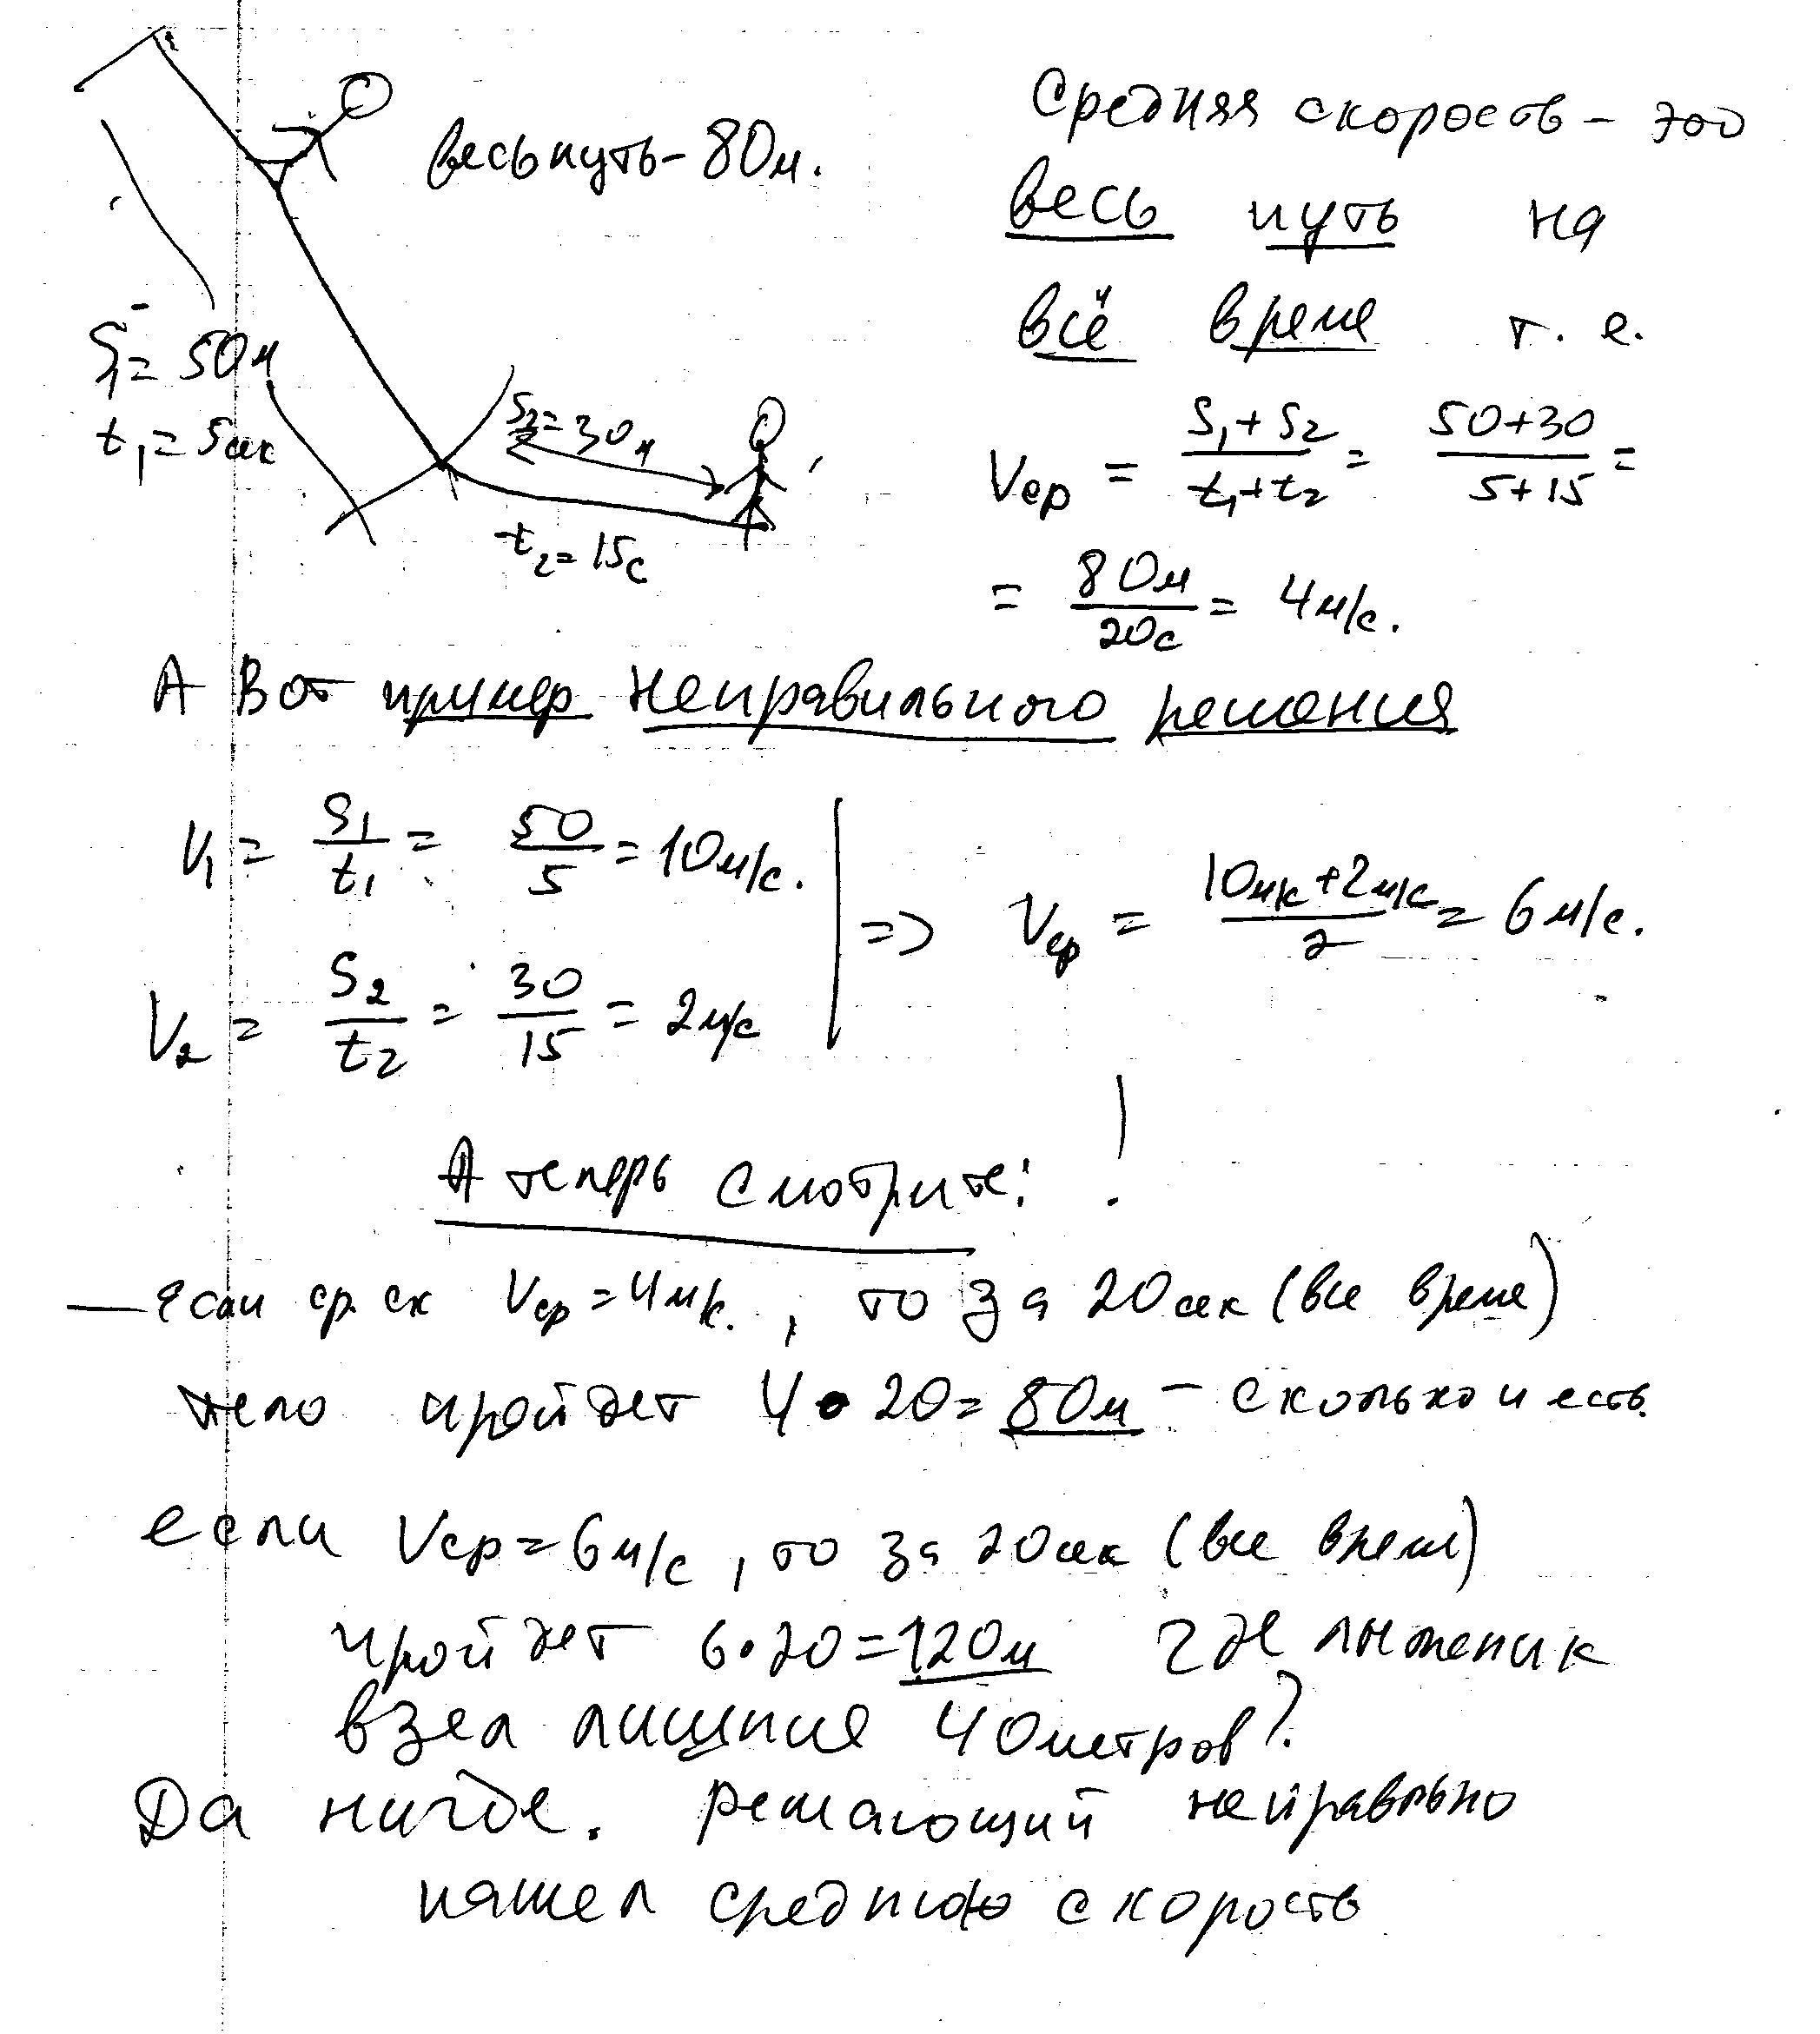 весь путь - 80м.
S₁ = 50м
t₁ = 5сек
S₂ = 30м
t₂ = 15с
Средняя скорость - это
весь путь на
всё время т. е.
Vср = (S₁ + S₂)/(t₁ + t₂) = (50+30)/(5+15) =
= 80м/20с = 4м/с.
А вот пример неправильного решения
V₁ = S₁/t₁ = 50/5 = 10м/с.
V₂ = S₂/t₂ = 30/15 = 2м/с
=> Vср = (10м/с + 2м/с)/2 = 6м/с.
А теперь смотрите: !
— Если ср. ск Vср = 4м/с., то за 20сек (все время)
тело пройдет 4 • 20 = 80м - сколько и есть.
если Vср = 6м/с, то за 20сек (все время)
пройдет 6 • 20 = 120м где лыжник
взял лишние 40 метров?
Да нигде. решающий неправильно
нашел среднюю скорость